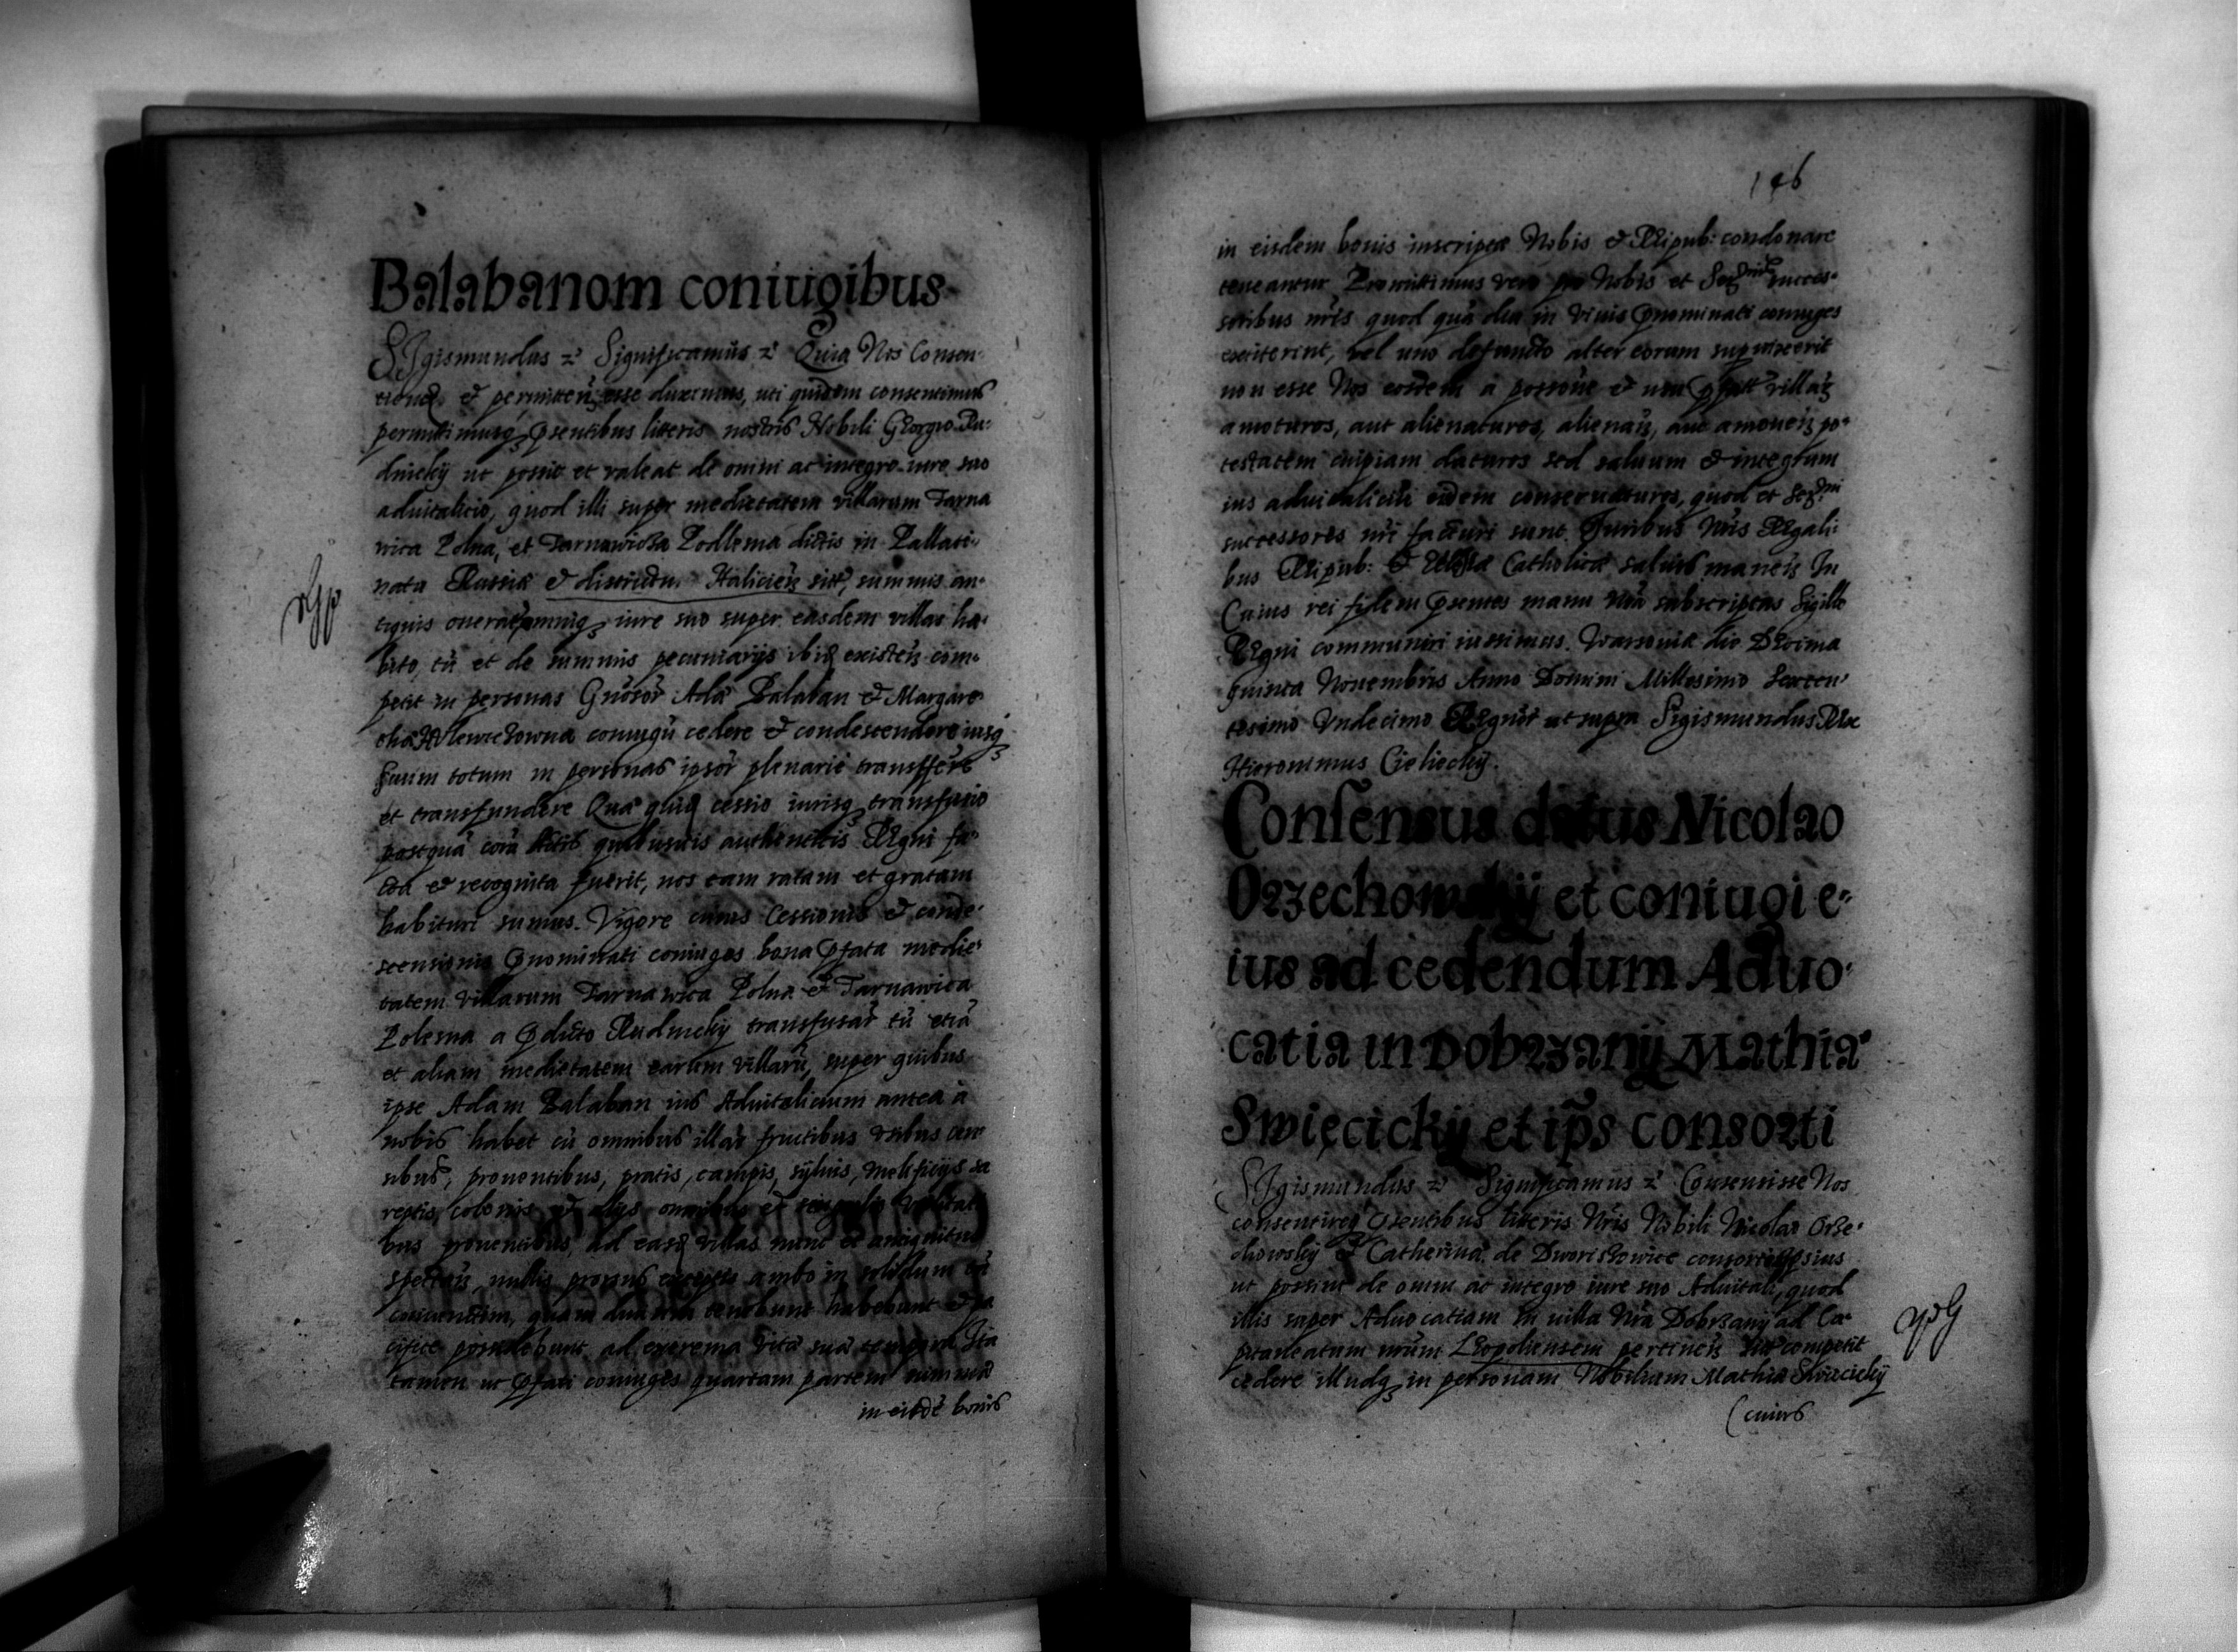 Balabanom coniugibus
SIgismundus zc Significamus zc Quia Nos Consen-
tiend et permitten esse duximus, uti quidem consentimus
permittimusq3 pńtibus literis nostris Nobili Georgio Ru-
dnicky ut possit et valeat de omni ac integro iure suo
aduitalitio, quod illi super medietatem villarum Tarna
wica Polna, et Tarnawicza Podlesna dictis in Pallati-
natu Russiæ et districtu Halicien sitt, summis an-
tiquis onerat omniq3 iure suo super easdem villas ha-
bito, tũ et de summis pecuniarijs ibiq existen com-
petit in personas Gnosor Adã Balaban et Margare
thæ coniugũ cedere et condescendere iusq3
suum totum in personas ipsor plenarie transfferre
et transfundere Quæ quid cessio iurisq3 transfusio
postquã corã Actis quibusuis authenticis Regni fa-
cta et recognita fuerit, nos eam ratam et gratam
habituri sumus. Vigore cuius Cessionis et conde-
scensionis pnominati coniuges bona pfata medie-
tatem villarum Tarnawica Polna et Tarnawica
Polesna a pdicto Rudnicky transfusar tũ etiã
et aliam medietatem earum villarũ, super quibus
ipse Adam Balaban ius Aduitalicium antea à
nobis habet cũ omnibus illar fructibus vsibus cen
sibus, prouentibus, pratis, campis, syluis, melificijs sa
reptis, colonis et alijs omnibus et singulis vtilitati
bus prouentibus ad easq villas nunc et antiquitus
spectan, nullis prorsus exceptis ambo in solidum et
coniunctim, quam diu vita tenebunt habebunt et pa
cifice possidebunt ad extrema vitæ suæ tempora Ita
tamen ut pfati coniuges quartam partem summæ
in eisdẽ bonis
146
in eisdem bonis inscriptæ Nobis et Reipub: condonare
teneantur Promittimus vero pro Nobis et Sernis succes-
soribus nris quod quã diu in viuis pnominati coniuges
extiterint, vel uno defuncto alter eorum supuixerit
non esse Nos eosdem à possone et usu pfatt villar
amoturos, aut alienaturos, alienan, aut amouen po-
testatem cuipiam daturos sed saluum et integrum
ius aduitalicium eidem conseruaturos, quod et Sermi
successores nri facturi sunt Iuribus Nris Regali-
bus Reipub: et Ecclesiæ Catholicæ saluis manen In
Cuius rei fidem pntes manu Nra subscriptas Sigillo
Regni communiri iussimus. Warsouiæ die Decima
quinta Nouembris Anno Domini Millesimo Sexcen-
tesimo Vndecimo Regnor ut supra Sigismundus Rex
Hieronimus Cieliecky.
Consensus datus Nicolao
Orzechowskij et coniugi e-
ius ad cedendum Aduo-
catia in Dobrzanij Mathiæ
Swięcickij et ips consorti
SIgismundus zc Significamus zc Consensisse Nos
consentireq pntibus literis Nris Nobili Nicolao Orze-
chowsky et Catherinæ de Dworiskowice consorti ipsius
ut possint de omni ac integro iure suo Aduitali, quod
illis super Aduocatiam in villa Nra Dobrzanij ad Ca-
pitaneatum nrum Leopoliensem pertinen competit
cedere illudq3 in personam Nobilium Mathiæ Swięcicky
cuius